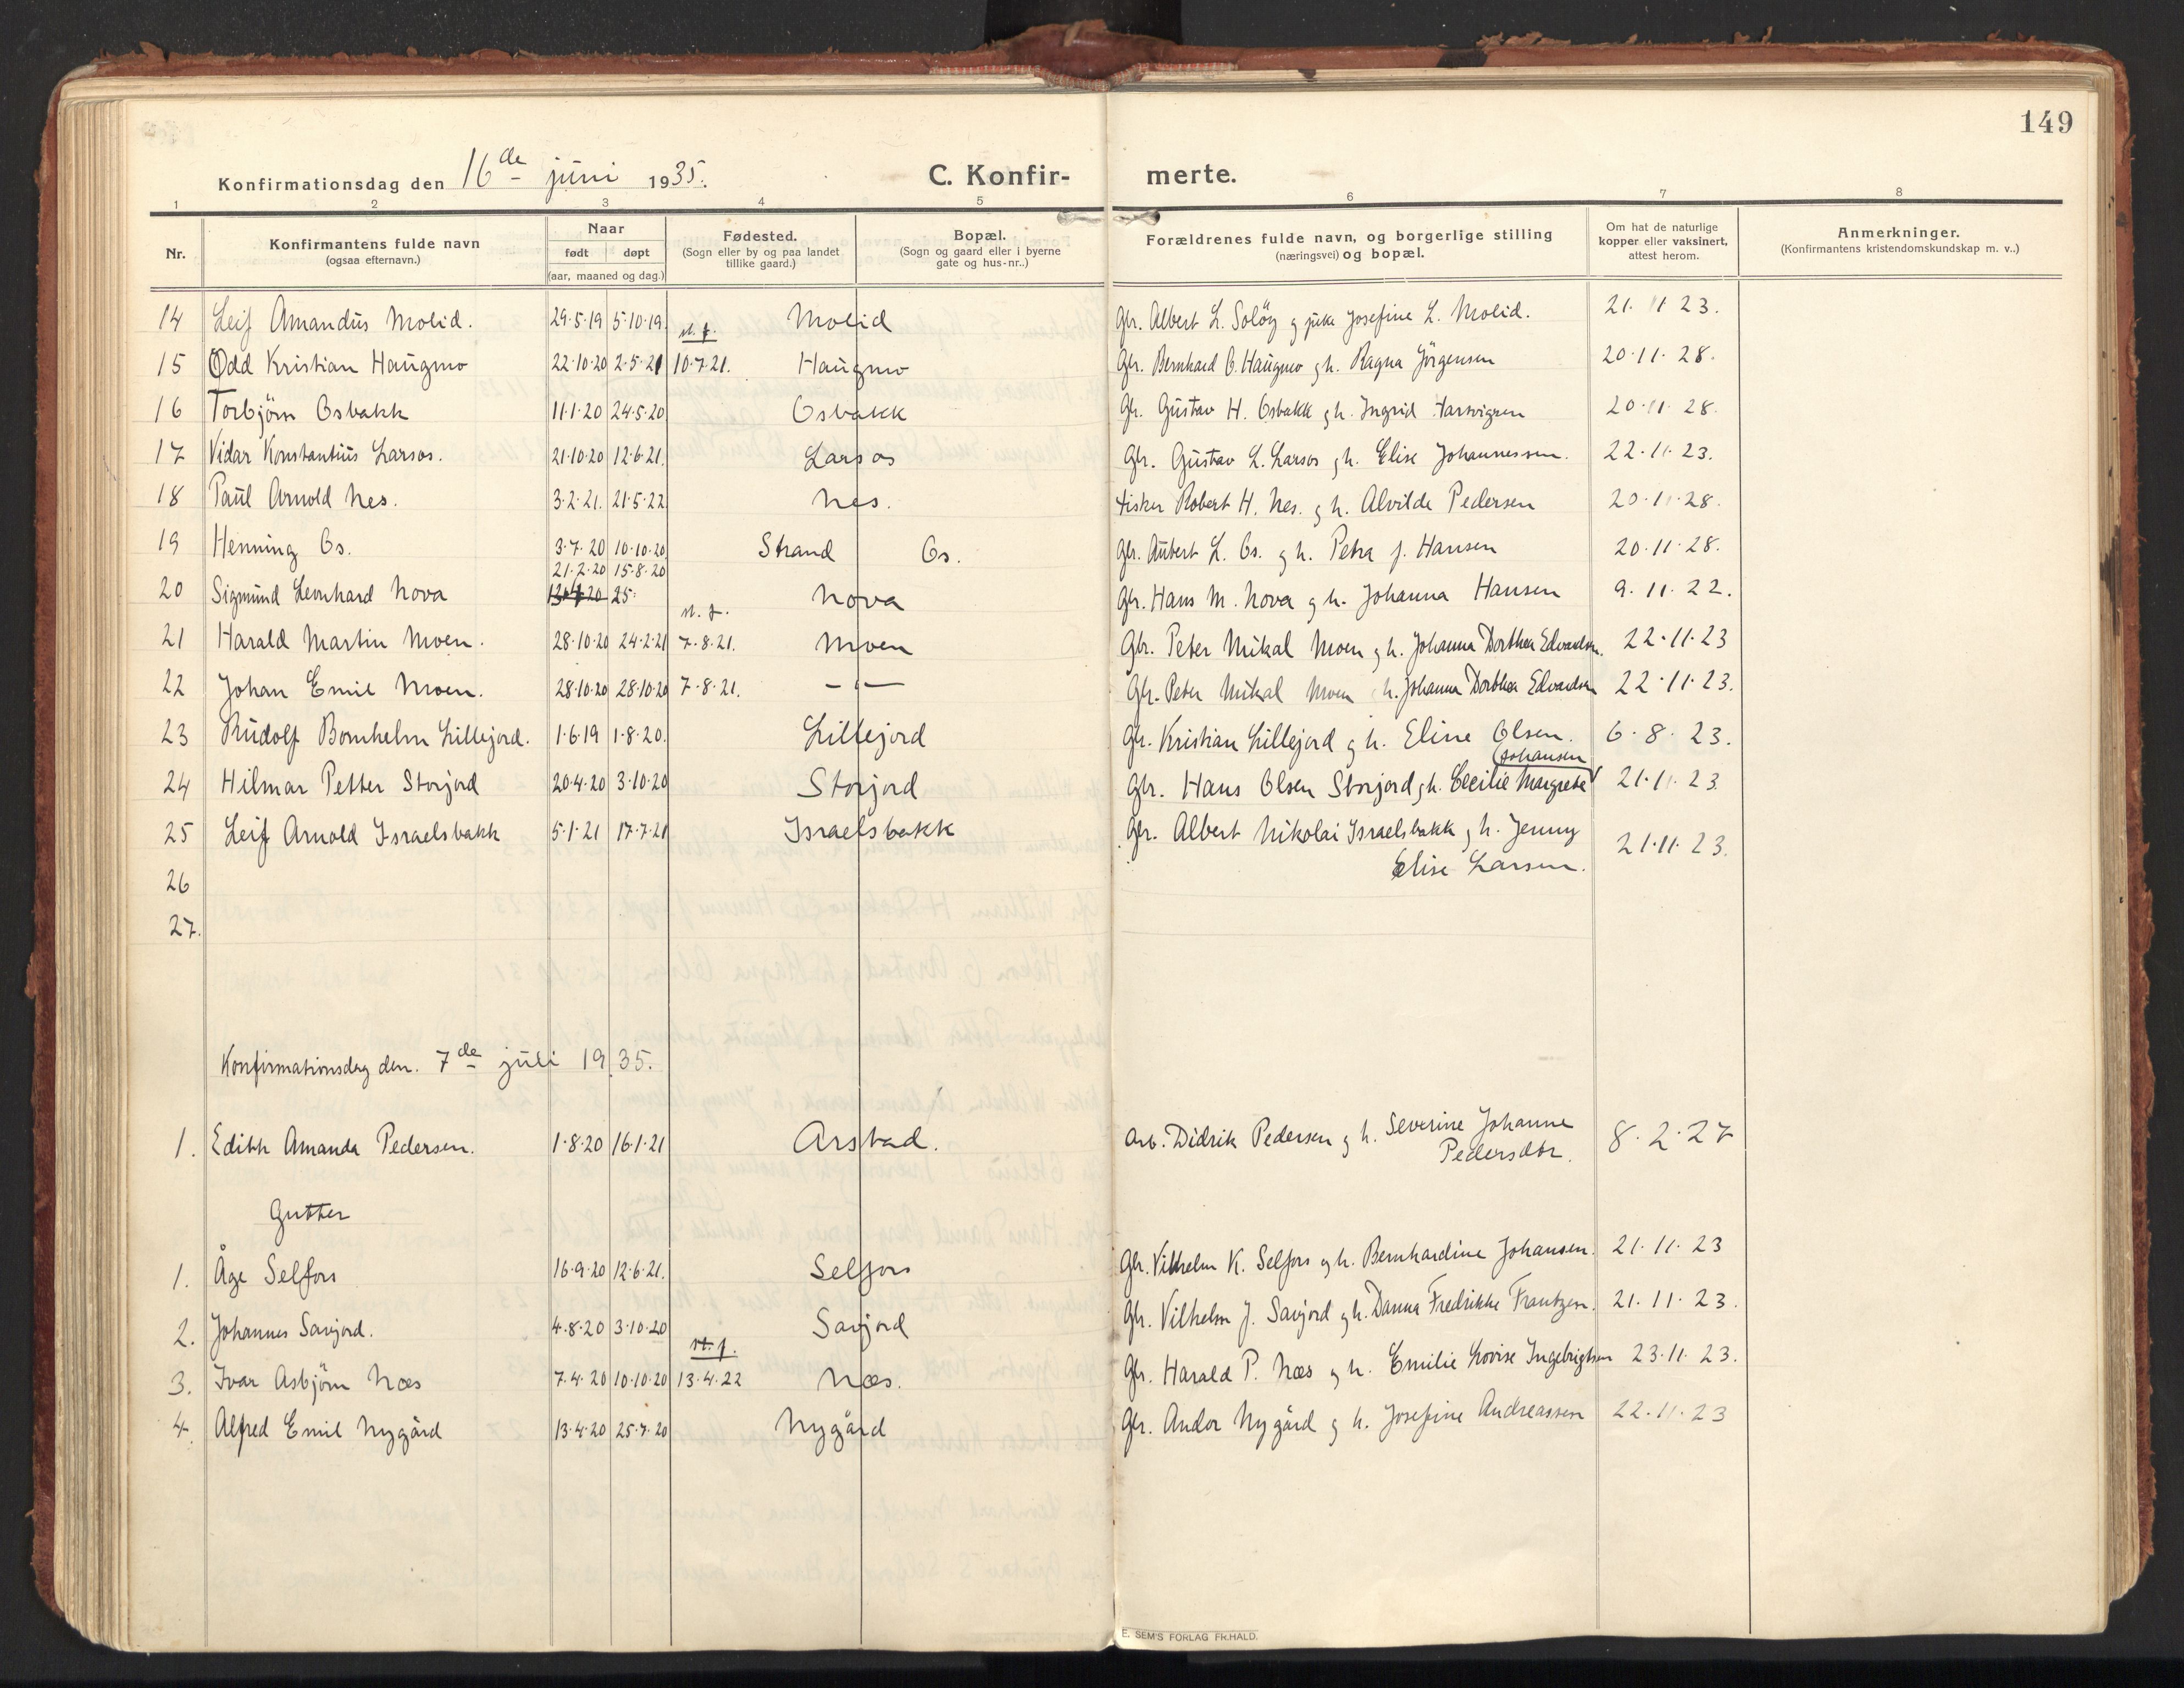 149
Konfirmationsdag den 16de juni 1935. C. Konfirmerte.
1 2 3 4 5 6 7 8
Nr. Konfirmantens fulde navn (ogsaa efternavn.) Naar født døpt (aar, maaned og dag.) Fødested. (Sogn eller by og paa landet tillike gaard.) Bopæl. (Sogn og gaard eller i byerne gate og hus-nr..) Forældrenes fulde navn, og borgerlige stilling (næringsvei) og bopæl. Om hat de naturlige kopper eller vaksinert, attest herom. Anmerkninger. (Konfirmantens kristendomskundskap m. v..)
14 Leif Amandus Molid. 29.5.19 5.10.19. Molid Gbr. Albert L. Soløy g pike Josefine L. Molid. 21.11 23.
st. f.
15 Odd Kristian Haugmo 22.10.20 2.5.21 10.7.21. Haugmo Gbr. Bernhard O. Haugmo g h. Ragna Jörgensen 20.11.28.
16 Torbjörn Osbakk 11.1.20 24.5.20 Osbakk Gbr. Gustav H. Osbakk g h. Ingrid Hartvigsen 20.11.28.
17 Vidar Konstantius Larsos. 21.10.20 12.6.21. Larsos Gbr. Gustav L. Larsos g h. Elise Johannessen. 22.11.23.
18 Paul Arnold Nes. 3.2.21. 21.5.22 Nes. Fisker Robert H. Nes. g h. Alvilde Pedersen 20.11.28.
19 Henning Os. 3.7.20 10.10.20 Strand Os. Gbr. Aubert L. Os. g h. Petra J. Hansen 20.11.28.
21.2.20 15.8.20
20 Sigmund Leonhard Nova 13.4.20 25. Nova Gbr. Hans M. Nova g h. Johanna Hansen 9.11.22.
st. f.
21 Harald Martin Moen. 28.10.20 24.2.21 7.8.21. Moen Gbr. Peter Mikal Moen g h. Johanna Dorthea Edvardsen. 22.11.23
22 Johan Emil Moen. 28.10.20 28.10.20 7.8.21. — — Gbr. Peter Mikal Moen h. Johanna Dorthea Edvardsen 22.11.23.
23 Rudolf Bornhelm Lillejord. 1.6.19 1.8.20. Lillejord Gbr. Kristian Lillejord g h. Eline Olsen. 6.8.23.
Johansen
24 Hilmar Petter Storjord 20.4.20 3.10.20 Storjord Gbr. Hans Olsen Storjord g h. Cecilie Margrete 21.11.23.
25 Leif Arnold Israelsbakk 5.1.21 17.7.21 Israelsbakk Gbr. Albert Nikolai Israelsbakk g h. Jenny
Elise Larsen. 21.11.23.
26
27.
Konfirmationsdag den. 7de juli 1935.
1. Edith Amanda Pedersen. 1.8.20 16.1.21 Arstad. Arb. Didrik Pedersen g h. Severine Johanne
Pedersdtr. 8.2.27
Gutter
1. Åge Selfors 16.9.20 12.6.21. Selfors Gbr. Vilhelm K. Selfors g h. Bernhardine Johansen. 21.11.23
2. Johannes Savjord. 4.8.20 3.10.20 Savjord Gbr. Vilhelm J. Savjord g h. Danna Fredrikke Frantzen. 21.11.23.
st. f.
3. Ivar Asbjörn Næs 7.4.20 10.10.20 13.4.22 Næs. Gbr. Harald P. Næs g h. Emilie Lovise Ingebrigtsen 23.11.23.
4. Alfred Emil Nygård 13.4.20 25.7.20 Nygård Gbr. Andor Nygård g h. Josefine Andreassen 22.11.23
E. SEM'S FORLAG FR.HALD.